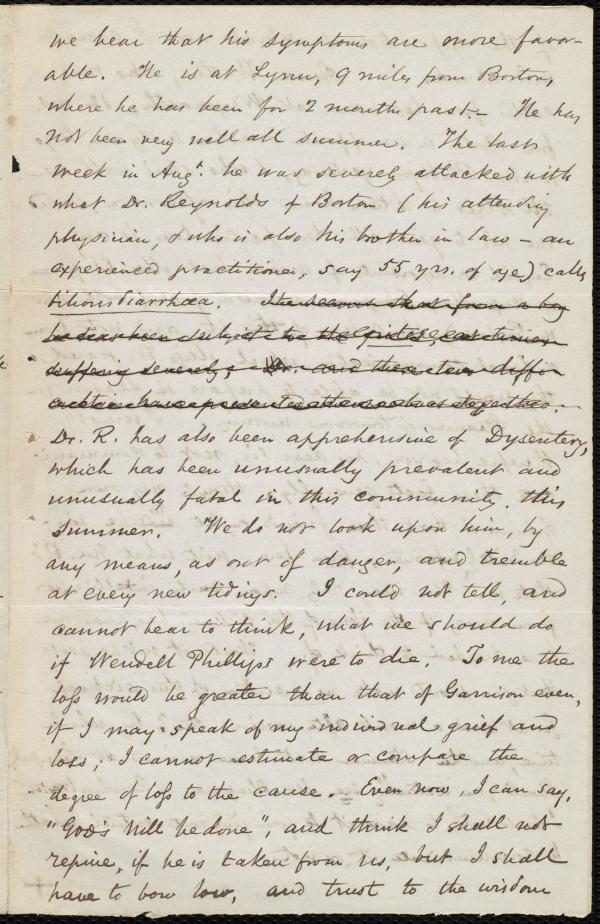 we hear that his symptoms are more favor-
able. He is at Lynn, 9 miles from Boston,
where he has been for 2 months past.- He has
not been very well all summer. The last
week in Augt. he was severely attacked with
what Dr. Reynolds of Boston (his attending
physician, & who is also his brother in law - an
experienced practitioner, say 55 yrs. of age) calls
bilious diarrhœa. It seems that from a boy
he has been subject to the
suffering severely, and these two diffi-
culties have presented themselves together.
Dr. R. has also been apprehensive of Dysentery,
which has been unusually prevalent and
unusually fatal in this community, this
Summer. We do not look upon him, by
any means, as out of danger, and tremble
at every new tidings. I could not tell, and
cannot bear to think, what we should do
if Wendell Phillips were to die. To me the
loss would be greater than that of Garrison even,
if I may speak of my individual grief and
loss; I cannot estimate or compare the
degree of loss to the cause. Even now, I can say,
"God's Will be done", and think I shall not
repine, if he is taken from us, but I shall
have to bow low, and trust to the wisdom